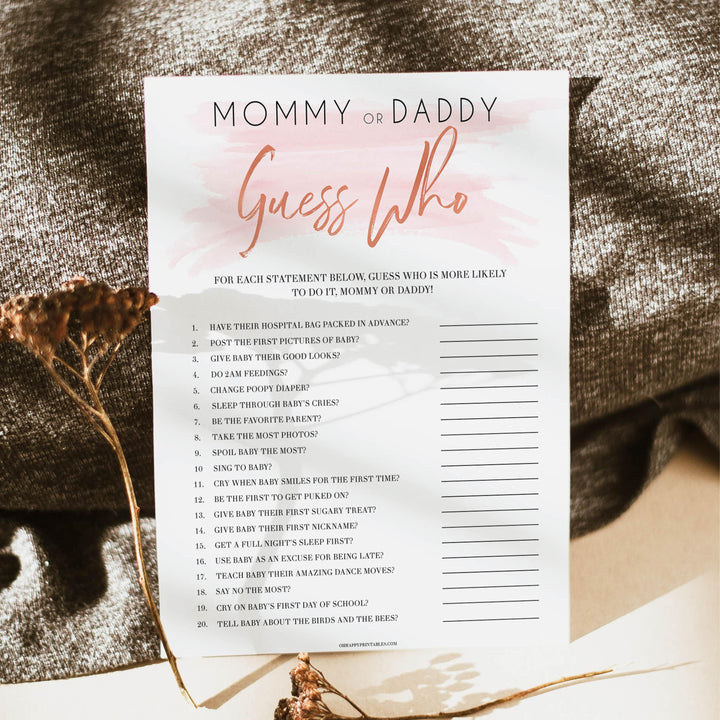 MOMMY OR DADDY
Guess Who
FOR EACH STATEMENT BELOW, GUESS WHO IS MORE LIKELY
TO DO IT, MOMMY OR DADDY!
1. HAVE THEIR HOSPITAL BAG PACKED IN ADVANCE?
2. POST THE FIRST PICTURES OF BABY?
3. GIVE BABY THEIR GOOD LOOKS?
4. DO 2AM FEEDINGS?
5. CHANGE POOPY DIAPER?
6. SLEEP THROUGH BABY'S CRIES?
7. BE THE FAVORITE PARENT?
8. TAKE THE MOST PHOTOS?
9. SPOIL BABY THE MOST?
10 SING TO BABY?
11. CRY WHEN BABY SMILES FOR THE FIRST TIME?
12. BE THE FIRST TO GET PUKED ON?
13. GIVE BABY THEIR FIRST SUGARY TREAT?
14. GIVE BABY THEIR FIRST NICKNAME?
15. GET A FULL NIGHT'S SLEEP FIRST?
16. USE BABY AS AN EXCUSE FOR BEING LATE?
17. TEACH BABY THEIR AMAZING DANCE MOVES?
18. SAY NO THE MOST?
19. CRY ON BABY'S FIRST DAY OF SCHOOL?
20. TELL BABY ABOUT THE BIRDS AND THE BEES?
OHHAPPYPRINTABLES.COM